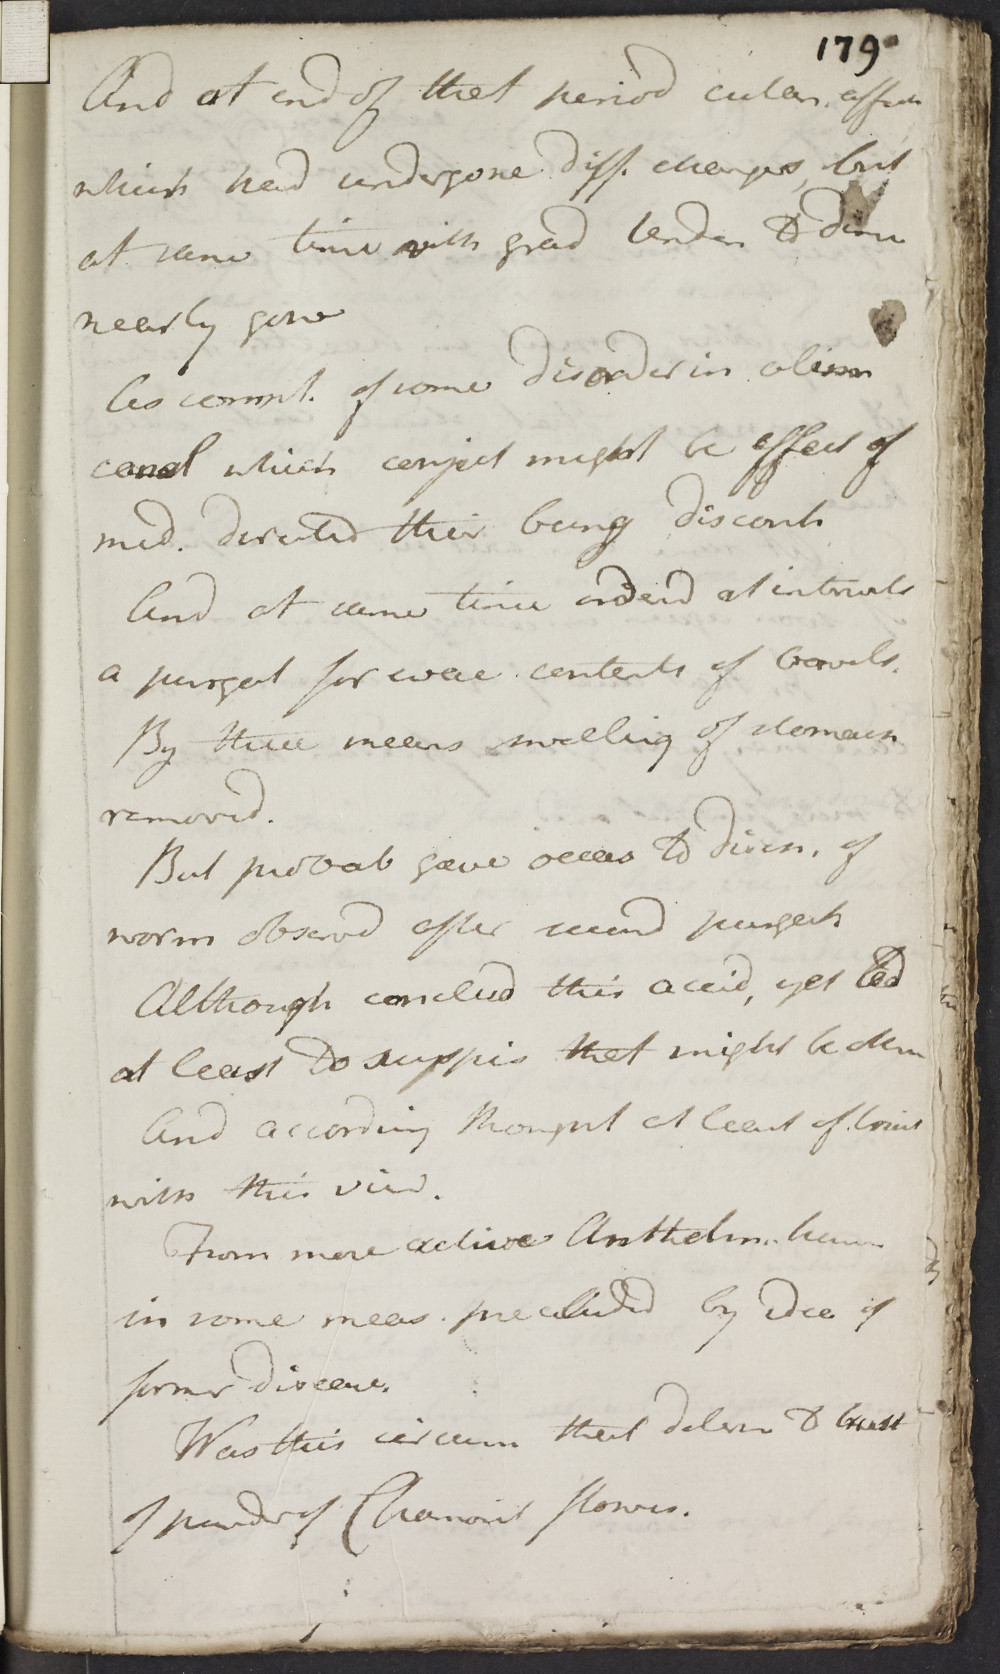 179
And at end of that period cutan. affec
which had undergone diff. changes, but
at same time with grad tenden to dimi
nearly gone
As compl. of some disorder in alim
canal which conject might be effect of
med. directed their being discont
And at same time orderd at intervals
a purgat for evac contents of bowels.
By these means swelling of stomach
removed.
But probab gave occas to discn. of
worm observd after second purgat
Although conclud this accid, yet led
at least to suppis that might be
And according thought at least of
with this view.
From more active Anthelm.
in some meas. precluded by idea of
former disease.
Was this circum that determ to trust
powder of Chamomil flowers.